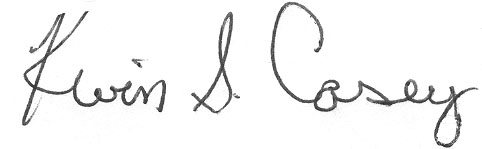 Kevin S. Casey